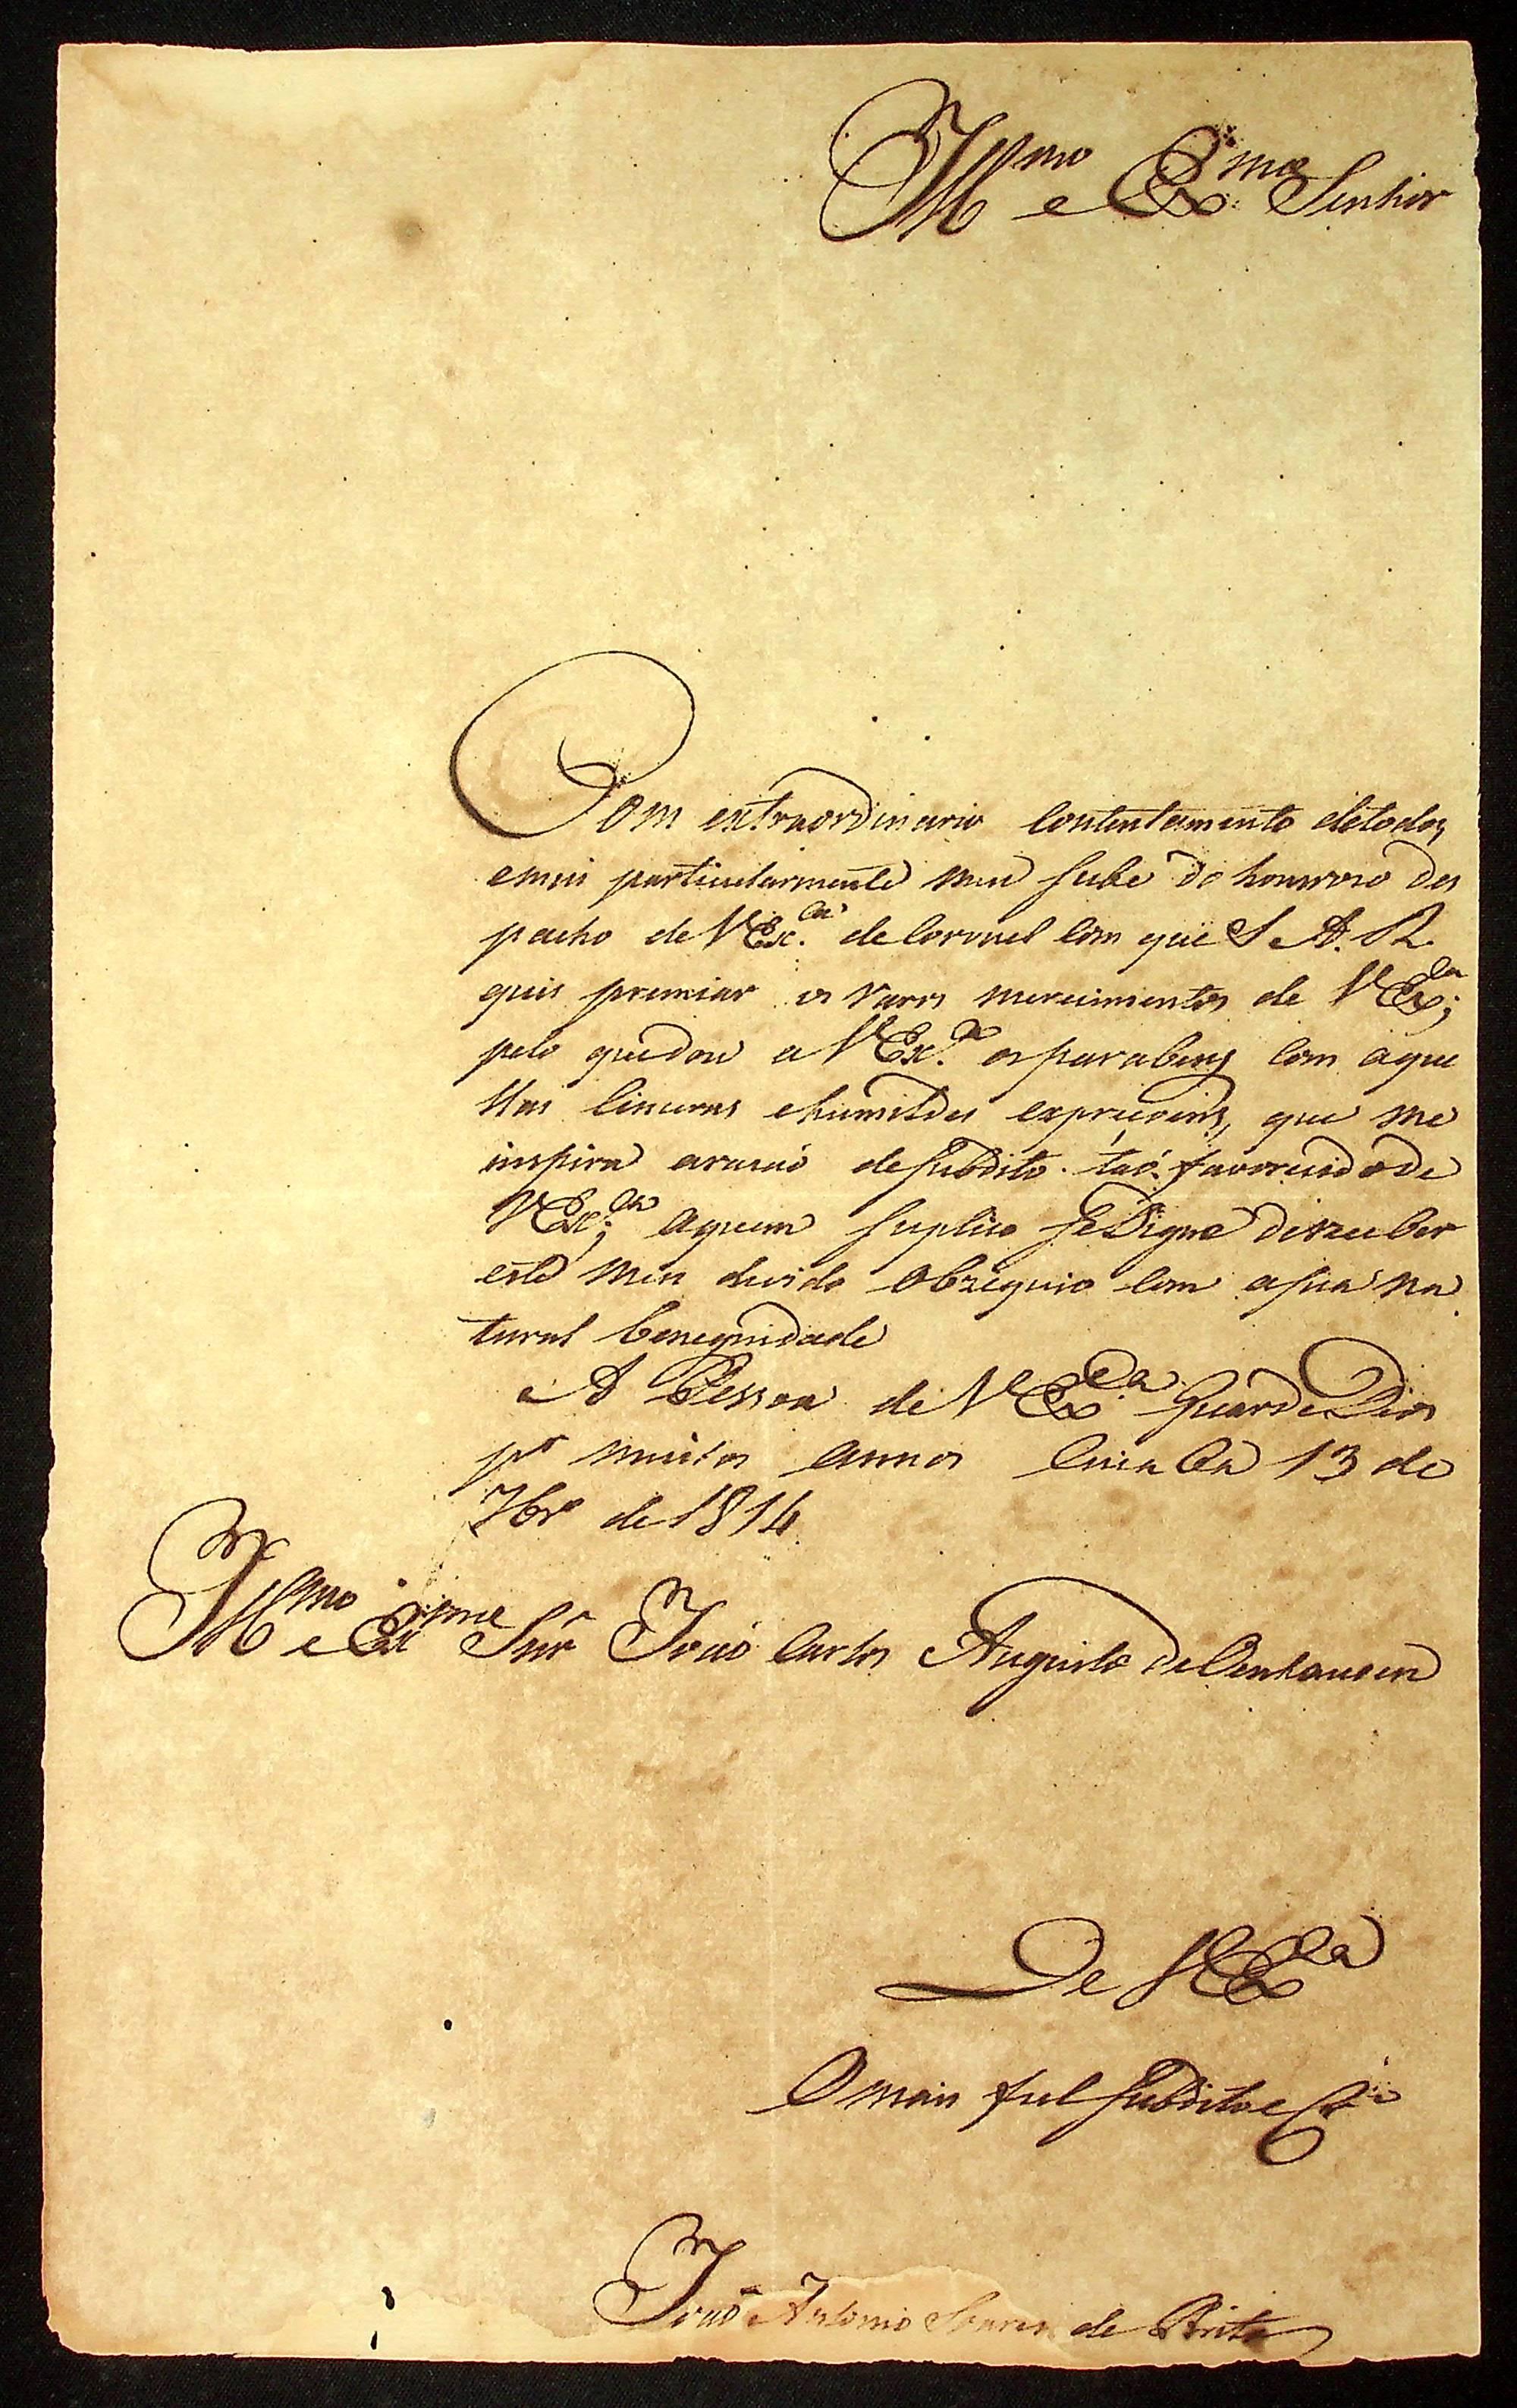 Illmo e Exmo Senhor
Com extraordinario contentamento detodos,
emui particularmente meu sube do honrroso des
pacho de V Exca de Coronel com que S A. R.
quis premiar os raros merecimentos de V Exca;
pelo quedou a V Exca os parabens com aque
llas sinceras ehumildes expreçoins, que me
inspira arazaó desubdito taó favorecido de
V Exca; aquem suplico seDigne dereceber
este meu devido obzequio com asua na
tural benegnidade
A Pessoa de V Exca Guarde Deos
pr muitos annos Cuiaba 13 de
7br.o de 1814.
Illmo e Exmo Snr Joaó Carlos Augusto de Oenhausen
De V Exca
O mais fiel subdito e Cr.o
Joaõ Antonio Soares de Brito